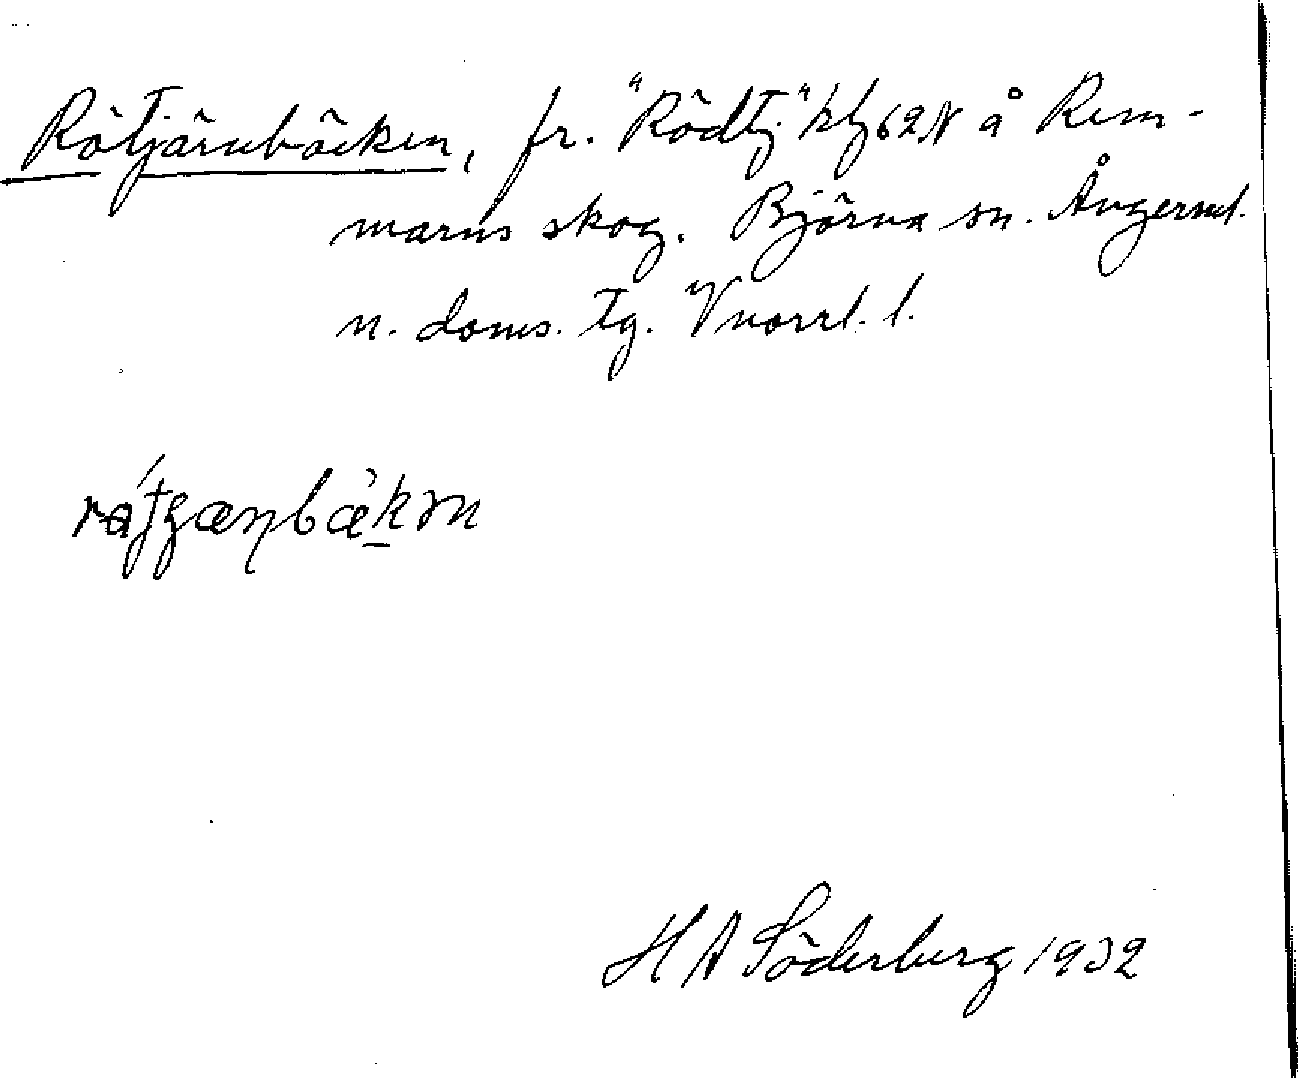 Rötjärnbäcken, fr. "Rödtj." kbl 62 N å Rem-
marns skog. Björna sn. Ångerml.
n. doms. tg. Vnorrl. l.
H A Söderberg 1932